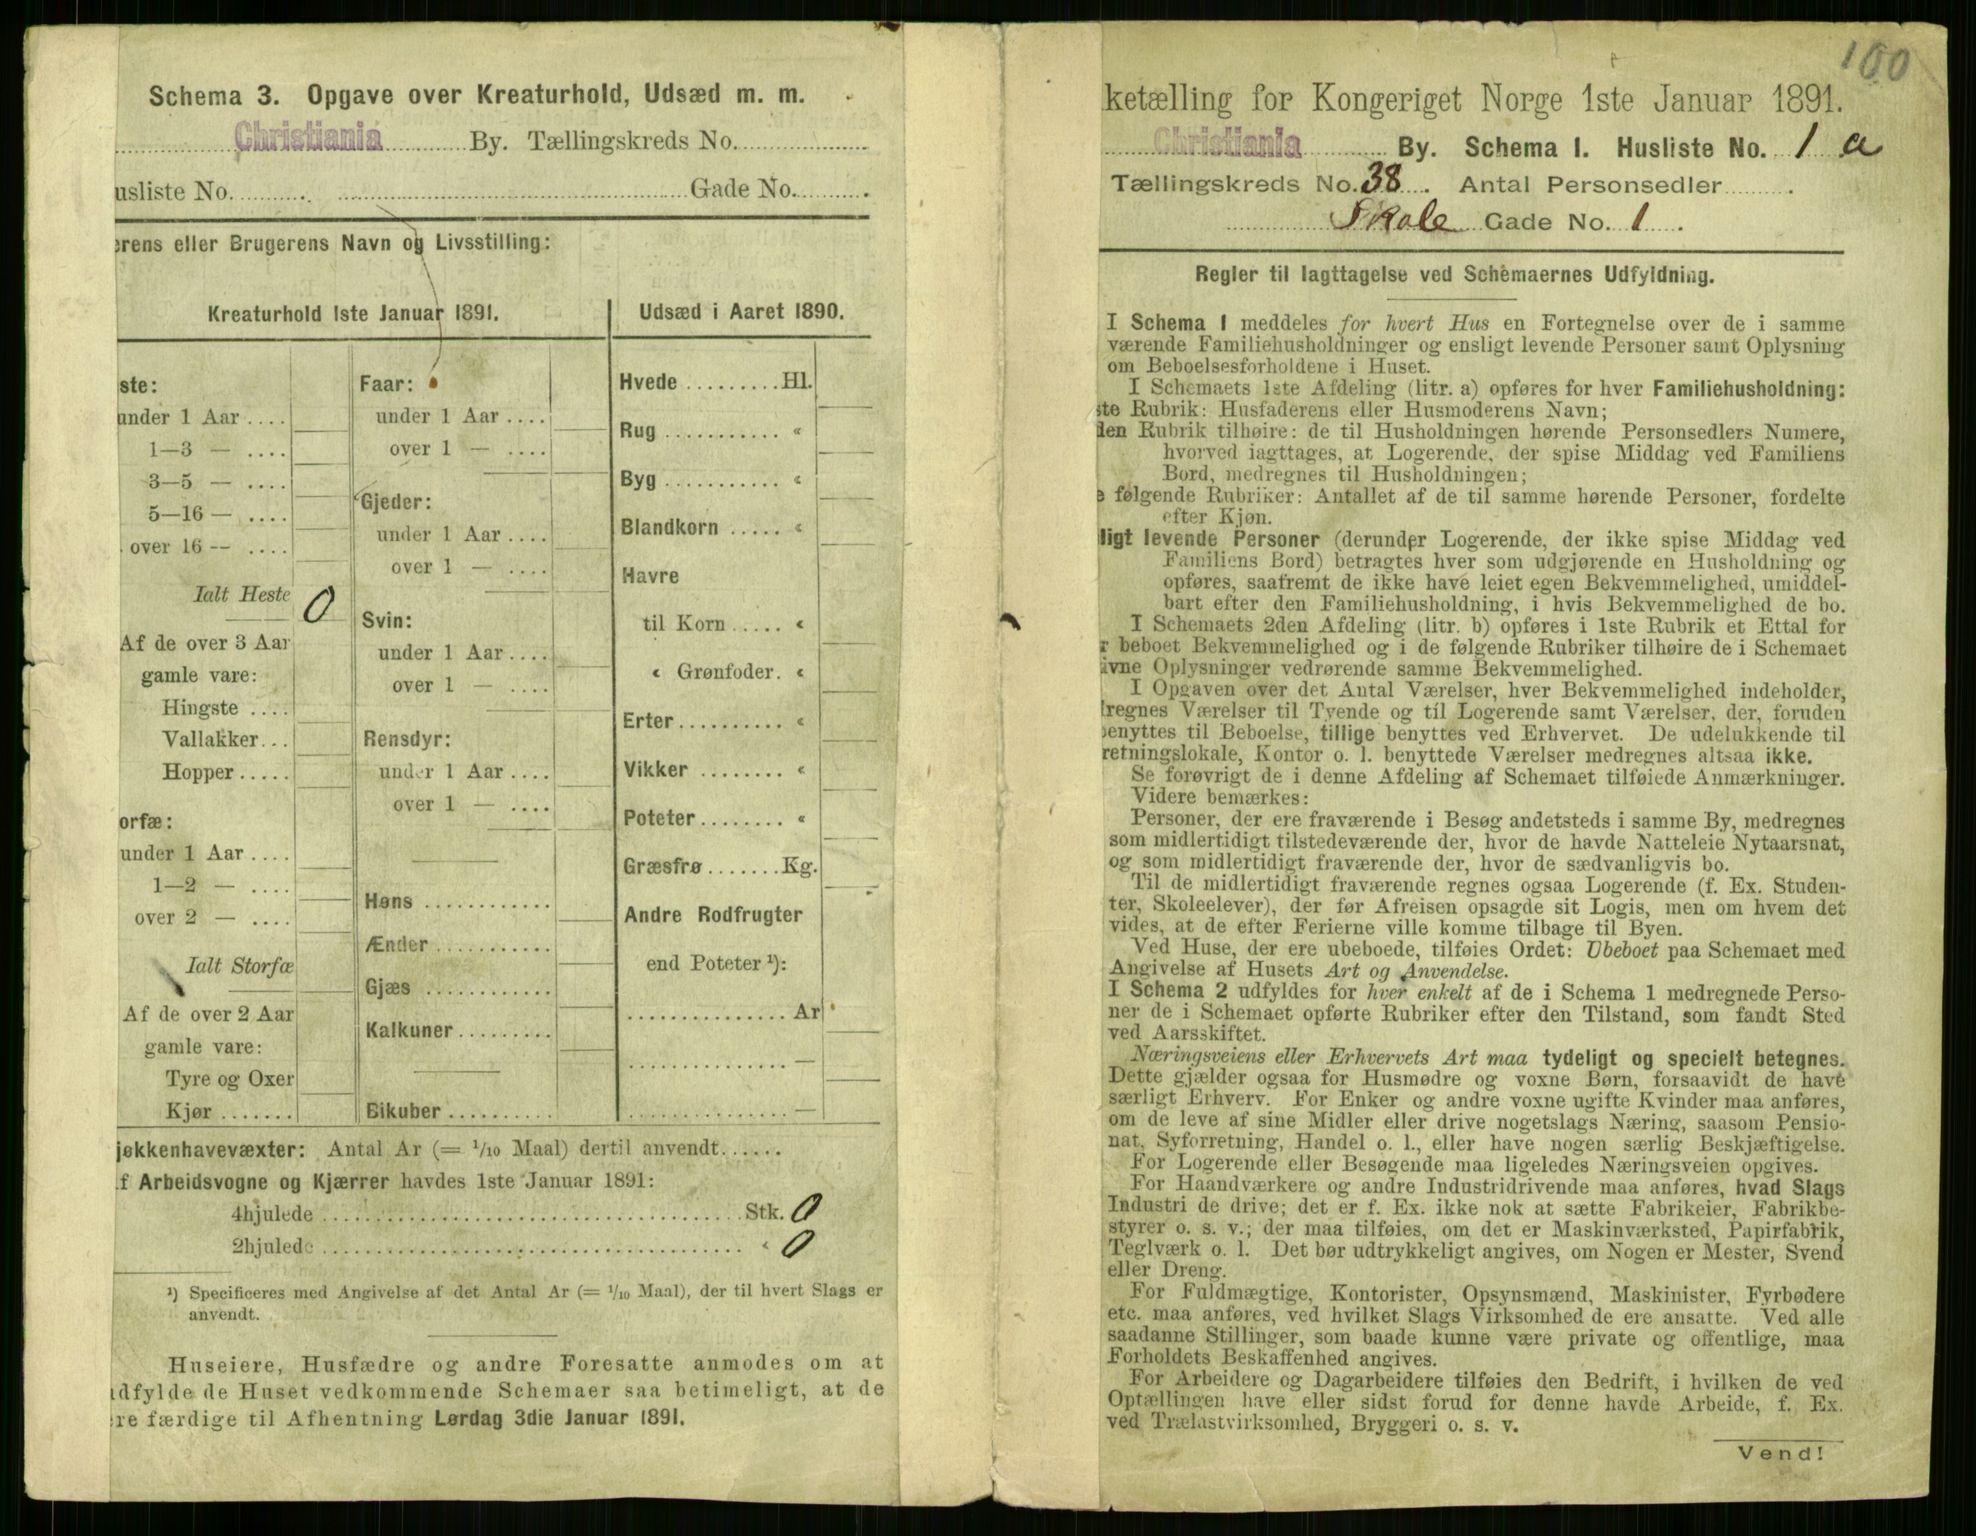 Schema 3. Opgave over Kreaturhold, Udsæd m. m.
Christiania By. Tællingskreds No.
usliste No. Gade No.
erens eller Brugerens Navn og Livsstilling:
Kreaturhold 1ste Januar 1891.
ste:
under 1 Aar ....
1—3 — ....
3—5 — ....
5—16 — ....
over 16 — ....
Ialt Heste 0
Af de over 3 Aar
gamle vare:
Hingste ....
Vallakker...
Hopper.....
orfæ:
under 1 Aar ....
1—2 — ....
over 2 — ....
Ialt Storfæ
Af de over 2 Aar
gamle vare:
Tyre og Oxer
Kjør .......
Faar:
under 1 Aar ....
over 1 — ....
Gjeder:
under 1 Aar ....
over 1 — ....
Svin:
under 1 Aar ....
over 1 — ....
Rensdyr:
under 1 Aar ....
over 1 — ....
Høns ............
Ænder ...........
Gjæs ............
Kalkuner .........
Bikuber ..........
Udsæd i Aaret 1890.
Hvede .........Hl.
Rug ........... «
Byg ........... «
Blandkorn ..... «
Havre
til Korn ..... «
« Grønfoder. «
Erter.......... «
Vikker ........ «
Poteter........ «
Græsfrø .......Kg.
Andre Rodfrugter
end Poteter ¹):
............... Ar
............... —
............... —
jøkkenhavevæxter: Antal Ar (= 1/10 Maal) dertil anvendt......
f Arbeidsvogne og Kjærrer havdes 1ste Januar 1891:
4hjulede ........ Stk. 0
2hjulede ........ « 0
¹) Specificeres med Angivelse af det Antal Ar (= 1/10 Maal), der til hvert Slags er
anvendt.
Huseiere, Husfædre og andre Foresatte anmodes om at
udfylde de Huset vedkommende Schemaer saa betimeligt, at de
ere færdige til Afhentning Lørdag 3die Januar 1891.
100
ketælling for Kongeriget Norge 1ste Januar 1891.
Christiania By. Schema I. Husliste No. 1 a
Tællingskreds No. 38. Antal Personsedler
Skole Gade No. 1.
Regler til Iagttagelse ved Schemaernes Udfyldning.
I Schema 1 meddeles for hvert Hus en Fortegnelse over de i samme
værende Familiehusholdninger og ensligt levende Personer samt Oplysning
om Beboelsesforholdene i Huset.
I Schemaets 1ste Afdeling (litr. a) opføres for hver Familiehusholdning:
ste Rubrik: Husfaderens eller Husmoderens Navn;
den Rubrik tilhøire: de til Husholdningen hørende Personsedlers Numere,
hvorved iagttages, at Logerende, der spise Middag ved Familiens
Bord, medregnes til Husholdningen;
e følgende Rubriker: Antallet af de til samme hørende Personer, fordelte
efter Kjøn.
ligt levende Personer (derunder Logerende, der ikke spise Middag ved
Familiens Bord) betragtes hver som udgjørende en Husholdning og
opføres, saafremt de ikke have leiet egen Bekvemmelighed, umiddel-
bart efter den Familiehusholdning, i hvis Bekvemmelighed de bo.
I Schemaets 2den Afdeling (litr. b) opføres i 1ste Rubrik et Ettal for
r beboet Bekvemmelighed og i de følgende Rubriker tilhøire de i Schemaet
ivne Oplysninger vedrørende samme Bekvemmelighed.
I Opgaven over det Antal Værelser, hver Bekvemmelighed indeholder,
regnes Værelser til Tyende og til Logerende samt Værelser, der, foruden
benyttes til Beboelse, tillige benyttes ved Erhvervet. De udelukkende til
retningslokale, Kontor o. l. benyttede Værelser medregnes altsaa ikke.
Se forøvrigt de i denne Afdeling af Schemaet tilføiede Anmærkninger.
Videre bemærkes:
Personer, der ere fraværende i Besøg andetsteds i samme By, medregnes
som midlertidigt tilstedeværende der, hvor de havde Natteleie Nytaarsnat,
og som midlertidigt fraværende der, hvor de sædvanligvis bo.
Til de midlertidigt fraværende regnes ogsaa Logerende (f. Ex. Studen-
ter, Skoleelever), der før Afreisen opsagde sit Logis, men om hvem det
vides, at de efter Ferierne ville komme tilbage til Byen.
Ved Huse, der ere ubeboede, tilføies Ordet: Ubeboet paa Schemaet med
Angivelse af Husets Art og Anvendelse.
I Schema 2 udfyldes for hver enkelt af de i Schema 1 medregnede Perso-
ner de i Schemaet opførte Rubriker efter den Tilstand, som fandt Sted
ved Aarsskiftet.
Næringsveiens eller Erhvervets Art maa tydeligt og specielt betegnes.
Dette gjælder ogsaa for Husmødre og voxne Børn, forsaavidt de have
særligt Erhverv. For Enker og andre voxne ugifte Kvinder maa anføres,
om de leve af sine Midler eller drive nogetslags Næring, saasom Pensio-
nat, Syforretning, Handel o. l., eller have nogen særlig Beskjæftigelse.
For Logerende eller Besøgende maa ligeledes Næringsveien opgives.
For Haandværkere og andre Industridrivende maa anføres, hvad Slags
Industri de drive; det er f. Ex. ikke nok at sætte Fabrikeier, Fabrikbe-
styrer o. s. v.; der maa tilføies, om det er Maskinværksted, Papirfabrik,
Teglværk o. l. Det bør udtrykkeligt angives, om Nogen er Mester, Svend
eller Dreng.
For Fuldmægtige, Kontorister, Opsynsmænd, Maskinister, Fyrbødere
etc. maa anføres, ved hvilket Slags Virksomhed de ere ansatte. Ved alle
saadanne Stillinger, som baade kunne være private og offentlige, maa
Forholdets Beskaffenhed angives.
For Arbeidere og Dagarbeidere tilføies den Bedrift, i hvilken de ved
Optællingen have eller sidst forud for denne havde Arbeide, f. Ex.
ved Trælastvirksomhed, Bryggeri o. s. v.
Vend!